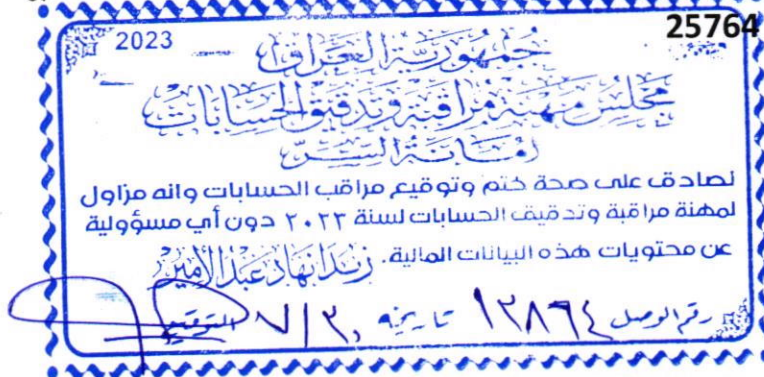 25764
2023
جمهورية العراق
مجلس مهنة مراقبة وتدقيق الحسابات
امانة السر
نصادق على صحة ختم وتوقيع مراقب الحسابات وانه مزاول
لمهنة مراقبة وتدقيق الحسابات لسنة ٢٠٢٣ دون أي مسؤولية
عن محتويات هذه البيانات المالية. زيد نهاد عبد الأمير
رقم الوصل ١٣٨٦٤ تاريخه ٧/٣٠ التوقيع